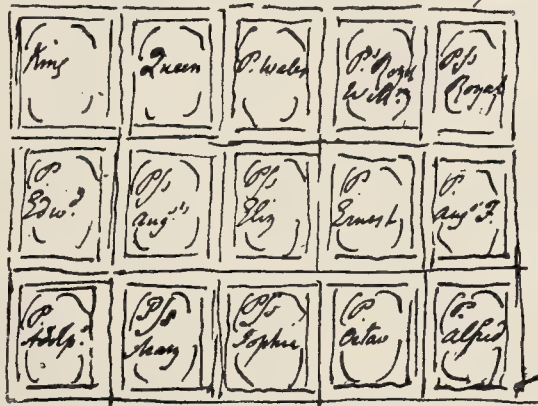 King
Queen
P. Wales
Ps Royal
Wm
Pss
Royal
P.
Edwd
Pss
Augsta
Pss
Eliz
P.
Ernest
P.
Augs F.
P.
Adolp.
Pss
Mary
Pss
Sophia
P.
Octav
P.
Alfred